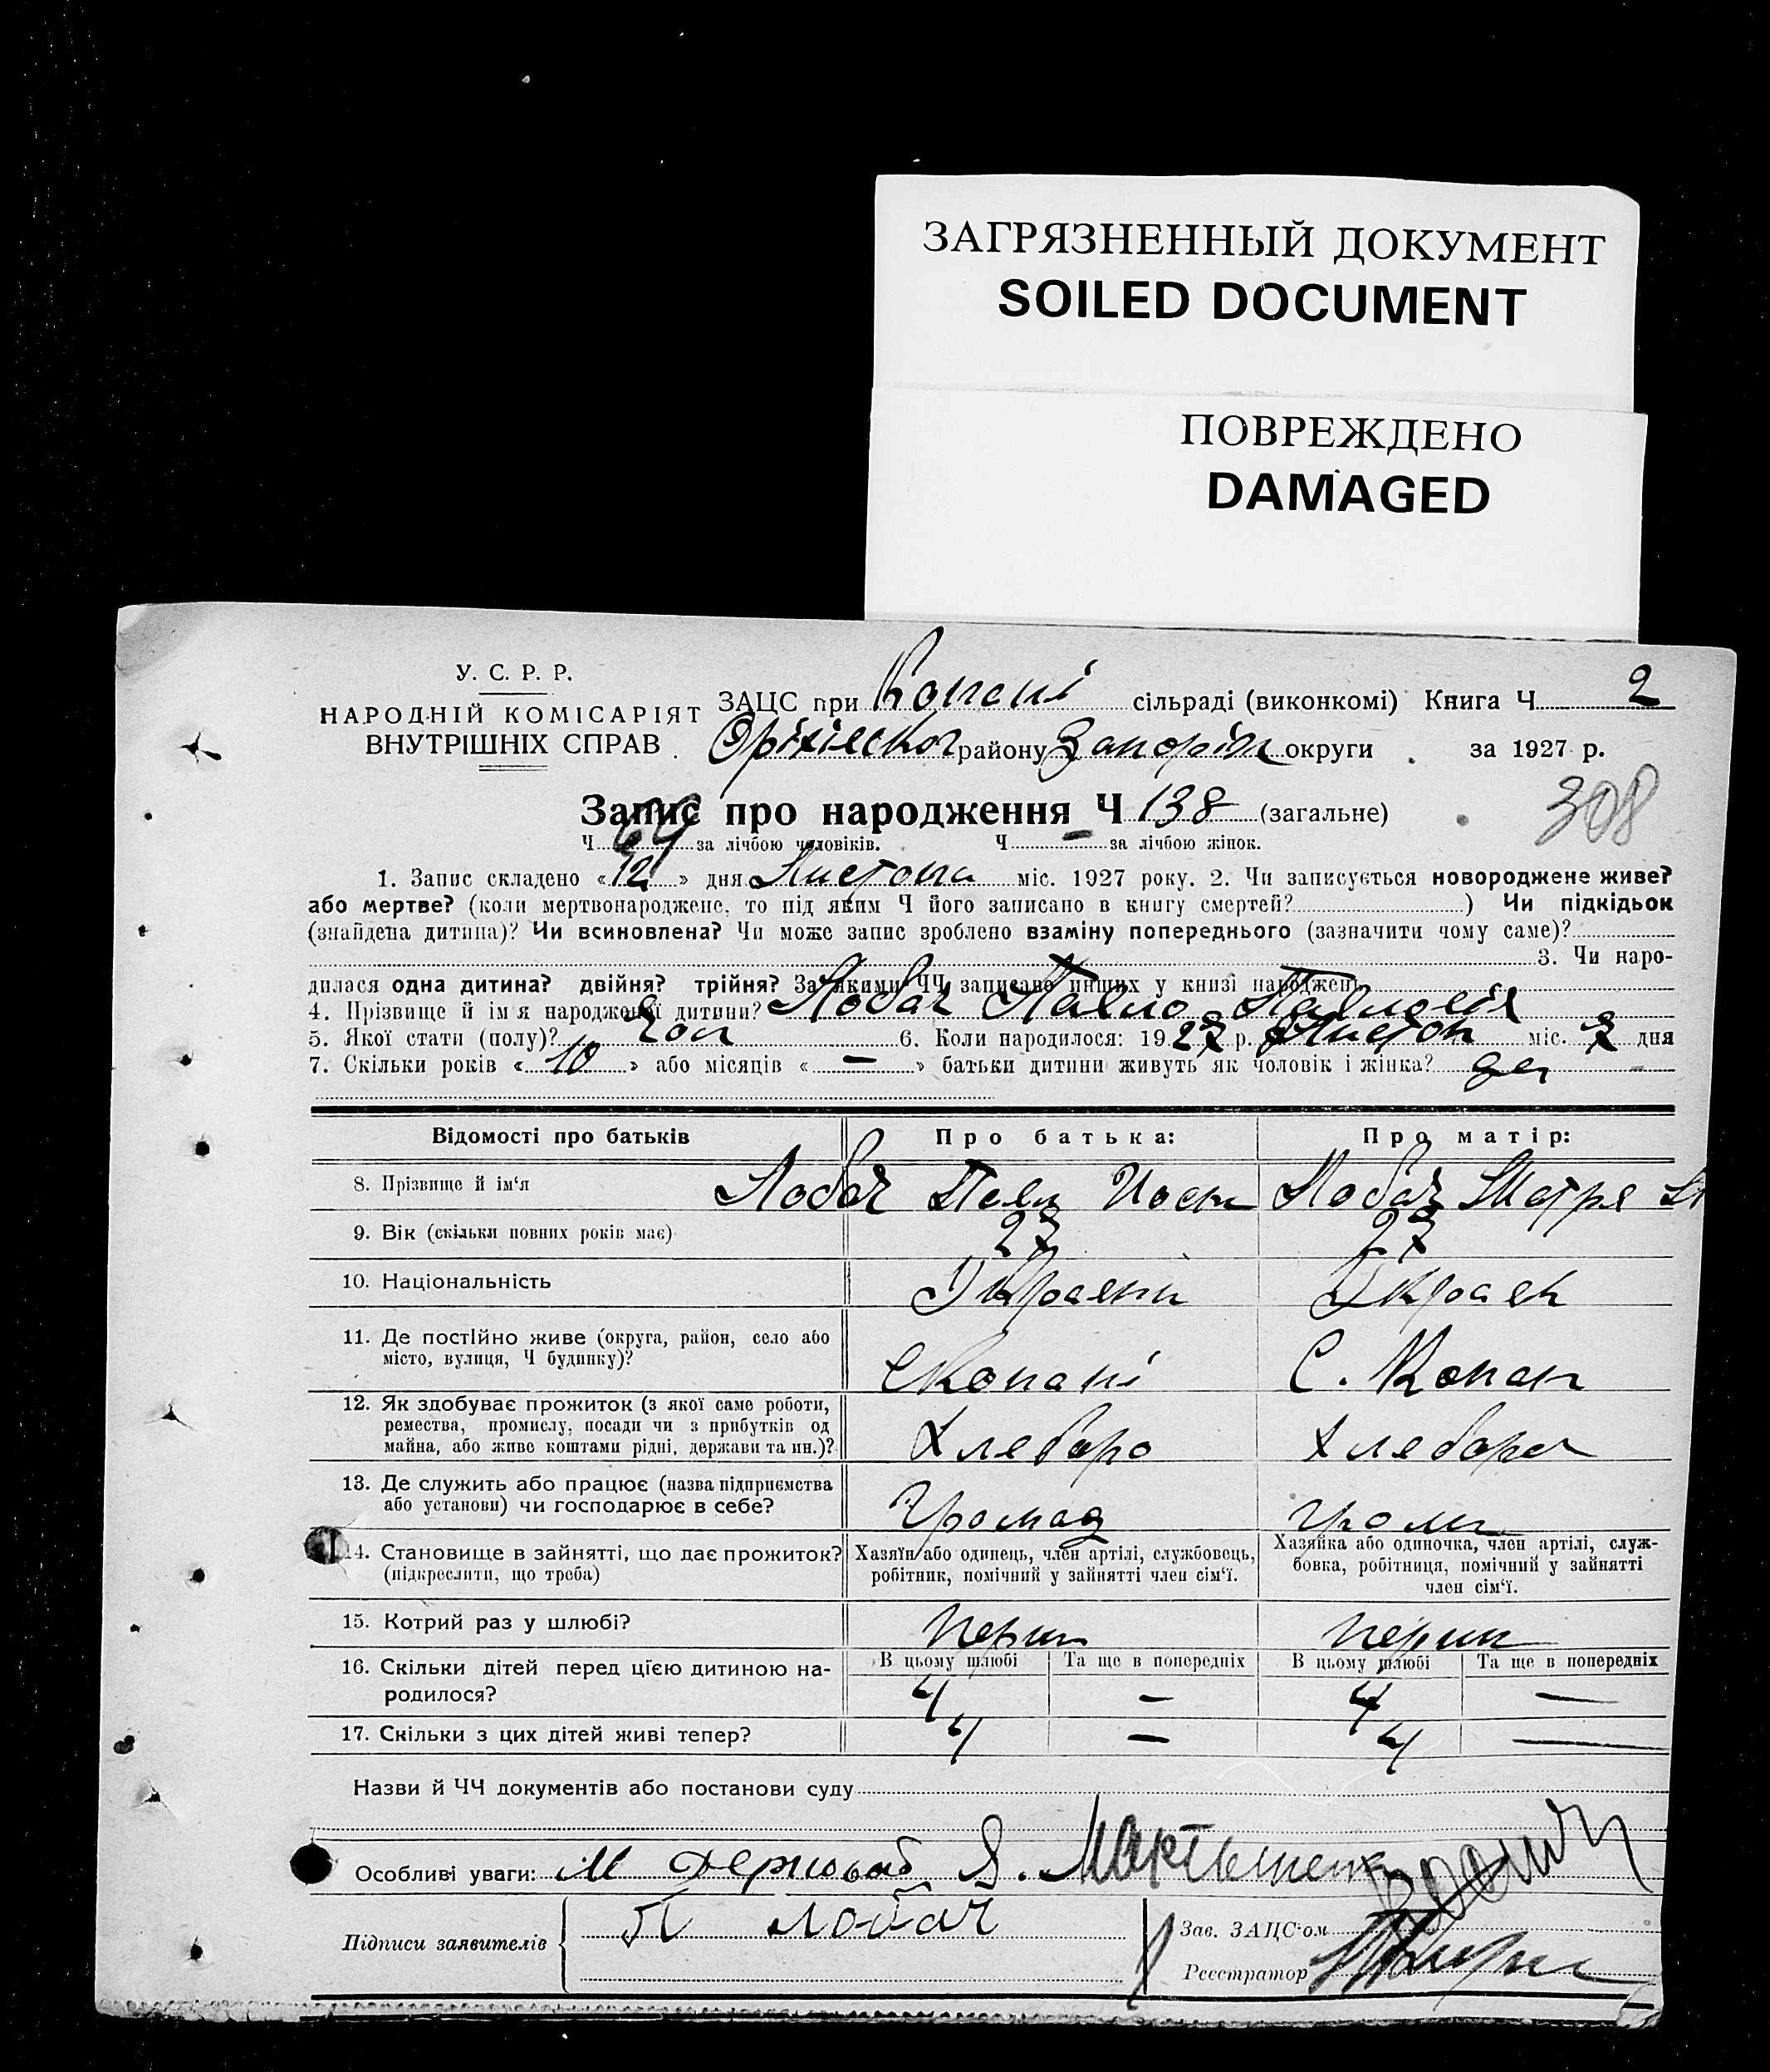 ЗАГРЯЗНЕННЫЙ ДОКУМЕНТ
SOILED DOCUMENT
ПОВРЕЖДЕНО
DAMAGED
У. С. Р. Р.
НАРОДНІЙ КОМІСАРІЯТ
ВНУТРІШНІХ СПРАВ
ЗАЦС при Копані сільраді (виконкомі) Книга Ч. 2
району округи за 1927 р.
308
Запис про народження Ч 138 (загальне)
Ч. 64 за лічбою чоловіків. Ч. — за лічбою жінок.
1. Запис складено «12» дня Листопа міс. 1927 року. 2. Чи записується новороджене живе?
або мертве? (коли мертвонароджене, то під яким Ч його записано в книгу смертей? ) Чи підкідьок
(знайдена дитина)? Чи всиновлена? Чи може запис зроблено взаміну попереднього (зазначити чому саме)?
3. Чи наро-
дилася одна дитина? двійня? трійня? За якими ЧЧ записано инших у книзі народжень
4. Прізвище й ім'я народженої дитини? Лобач Павло Павлович
5. Якої стати (полу)? 6. Коли народилося: 1927 р. Листоп міс. 7 дня
7. Скільки років «10» або місяців «—» батьки дитини живуть як чоловік і жінка?
Відомості про батьків Про батька: Про матір:
8. Прізвище й ім‘я Лобач Павл Лобач Мотря
9. Вік (скільки повних років має) 27 27
10. Національність Украени Украен
11. Де постійно живе (округа, район, село або
місто, вулиця, Ч будинку)? С Копані С. Копан
12. Як здобуває прожиток (з якої саме роботи,
ремества, промислу, посади чи з прибутків од
майна, або живе коштами рідні, держави та ин.)? Хлеборо Хлебороб
13. Де служить або працює (назва підприємства
або установи) чи господарює в себе? Громад Гром
14. Становище в зайнятті, що дає прожиток?
(підкреслити, що треба)
Хазяїн або одинець, член артілі, службовець,
робітник, помічний у зайнятті член сім‘ї.
Хазяйка або одиночка, член артілі, служ-
бовка, робітниця, помічний у зайнятті
член сім‘ї.
15. Котрий раз у шлюбі? перши перши
16. Скільки дітей перед цією дитиною на-
родилося?
В цьому шлюбі Та ще в попередніх В цьому шлюбі Та ще в попередніх
4 — 4 —
17. Скільки з цих дітей живі тепер? 4 — 4 —
Назви й ЧЧ документів або постанови суду
Особливі уваги: М
Підписи заявителів П Лобач
Зав. ЗАЦС'ом
Реєстратор